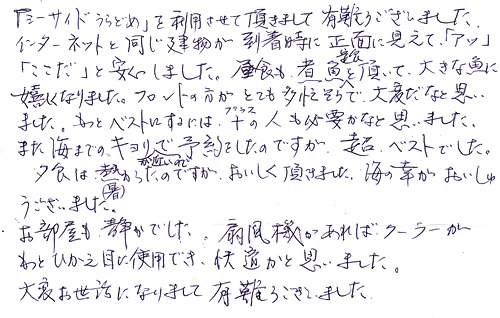 「シーサイドうらどめ」を利用させて頂きまして有難うございました。
インターネットと同じ建物が到着時に正面に見えて、「アッ」
「ここだ」と安心しました。昼食も煮魚定食を頂いて、大きな魚に
嬉しくなりました。フロントの方がとても多忙そうで、大変だなと思い
ました。もっとベストにするには、+プラスの人も必要かなと思いました。
また海までのキョリが近いので予約をしたのですが、超ベストでした。
夕食は暑(暑)かったのですが、おいしく頂きました。海の幸がおいしゅ
うございました。
お部屋も静かでした。扇風機があればクーラーが
もっとひかえ目に使用でき、快適かと思いました。
大変お世話になりまして有難うございました。